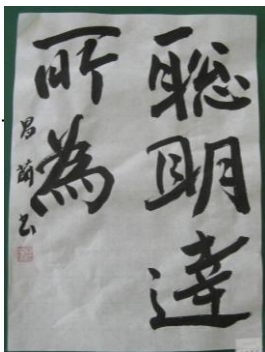 聡明達
所為
昌蘭書